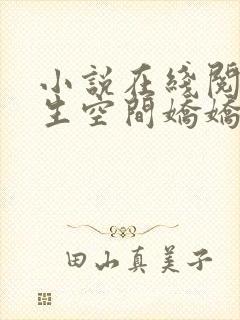 小說在綫閱
生空間嬌嬌
田山真美子